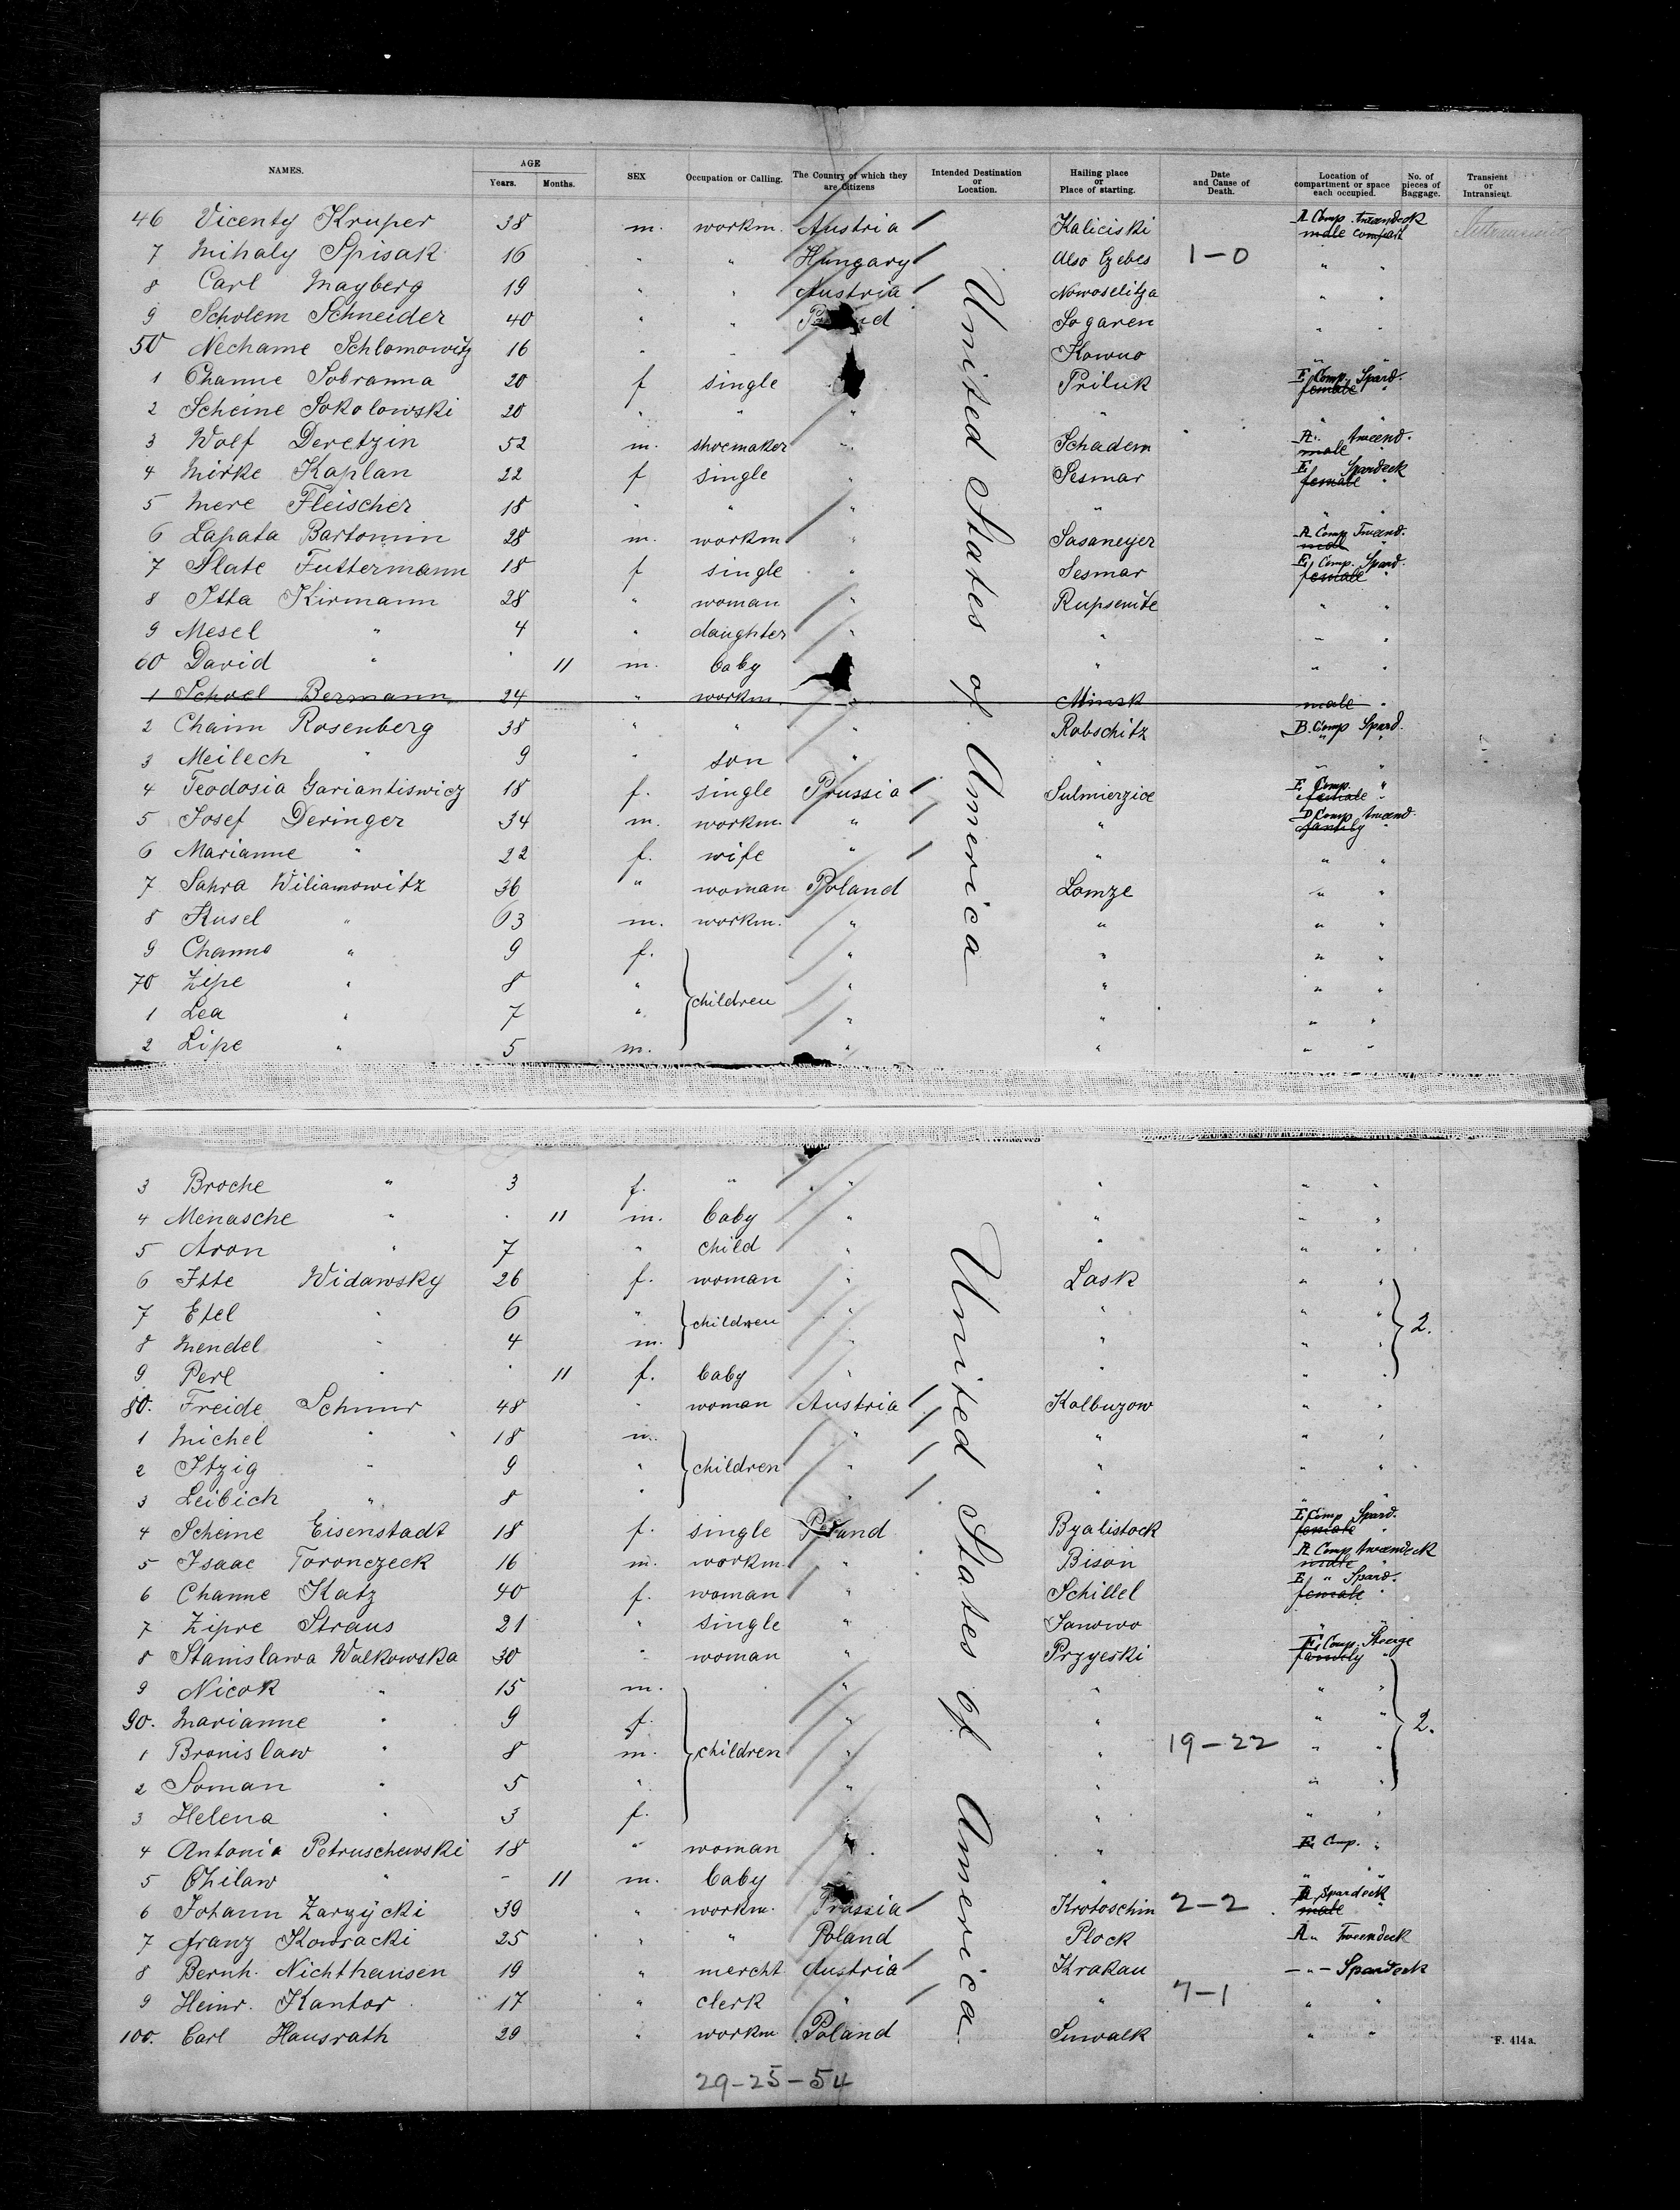 NAMES. AGE Years. Months. SEX Occupation or Calling. The Country of which they are Citizens Intended Destination or Location. Hailing place or Place of starting. Date and Cause of Death. Location of compartment or space each occupied. No. of pieces of Baggage. Transient or Intransient.
46 Vicenty Kruper 38 m. workm. Austria Kaliciski A Comp. tweendeck male compart
7 Mihaly Spisak 16 " " Hungary Also Czebes 1-0 " "
8 Carl Mayberg 19 " " Austria Nowoselitza " "
9 Scholem Schneider 40 " " Poland Sogaren " "
50 Nechame Schlomowitz 16 " " Kowno
1 Channe Sobranna 20 f single Priluk E, Comp. Spard. female "
2 Scheine Sokolowski 20 " " " " " "
3 Wolf Deretzin 52 m. shoemaker " Schadem A " tweend. male
4 Mirke Kaplan 22 f single " Sesmar E, Spardeck female "
5 Mere Fleischer 18 " " " " " "
6 Lapata Bartomin 28 m. workm " Sasaneyer A Comp Tweend. male
7 Slate Futtermann 18 f single " Sesmar E, Comp. Spard. female "
8 Itta Kirmann 28 " woman " Rupsemite " "
9 Mesel " 4 " daughter " " " "
60 David " 11 m. baby " " "
1 Schoel Bermann 24 " workm. " Minsk male "
2 Chaim Rosenberg 38 " " " Robschitz B. Comp Spard.
3 Meilech " 9 " son " " " "
4 Teodosia Gariantiswicz 18 f. single Prussia Sulmierzice E Comp. " female "
5 Josef Deringer 34 m. workm. " " D Comp tweend. family "
6 Marianne " 22 f. wife " " " "
7 Sahra Wiliamowitz 36 " woman Poland Lomze " "
8 Rusel " 63 m. workm. " " " "
9 Channe " 9 f. " " " "
70 Zipe " 8 " children " " " "
1 Lea " 7 " " " " "
2 Lipe " 5 m. " " " "
United States of America
3 Broche " 3 f. " " " " "
4 Menasche " 11 m. baby " " " "
5 Aron " 7 " child " " " "
6 Itte Widawsky 26 f. woman " Lask " "
7 Etel " 6 " children " " " " 2.
8 Mendel " 4 m. " " " "
9 Perl " 11 f. baby " " " "
80. Freide Schnur 48 " woman Austria Kolbuzow " "
1 Michel " 18 m. " " " "
2 Itzig " 9 " children " " " "
3 Leibich " 8 " " " " "
4 Scheine Eisenstadt 18 f. single Poland Byalistock E Comp Spard. female "
5 Isaac Toronczeck 16 m. workm. " Bison A Comp tweendeck male "
6 Channe Katz 40 f. woman " Schillel E, " Spard. female "
7 Zipre Straus 21 " single " Janowo " "
8 Stanislawa Walkowska 30 " woman " Przyeski F, Comp. Steerge family "
9 Nicok " 15 m. " " " "
90. Marianne " 9 f. " " " " 2.
1 Bronislaw " 8 m. children " " 19-22 " "
2 Soman " 5 " " " " "
3 Helena " 3 f. " " " "
4 Antonia Petruschewski 18 " woman " " E Comp. "
5 Chilaw " - 11 m. baby " " "
6 Johann Zarzycki 39 " workm. Prussia Krotoschin 2-2 A, Spardeck male
7 Franz Kowracki 25 " " Poland Plock A " Tweendeck
8 Bernh. Nichthausen 19 " mercht. Austria Krakau - " - Spardeck
9 Heinr. Kantor 17 " clerk " " 7-1 " "
100. Carl Hausrath 29 " workm Poland Suwalk " "
United States of America.
F. 414a.
29-25-54